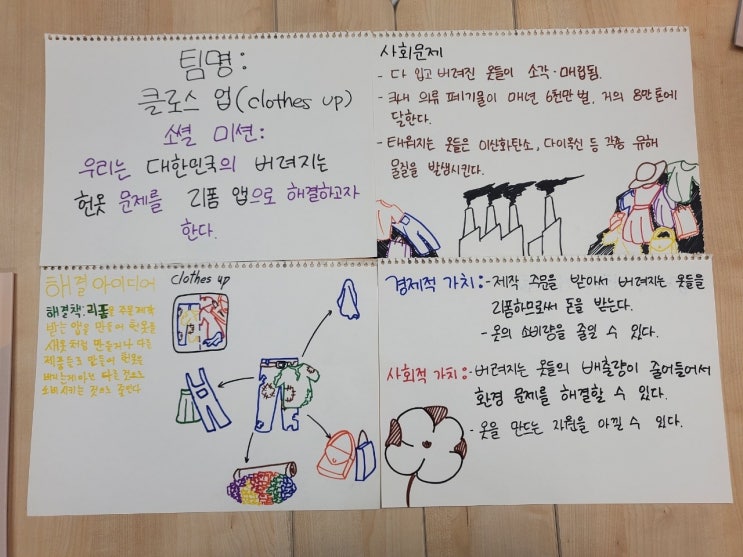 팀명:
클로스 업(clothes up)
소셜 미션:
우리는 대한민국의 버려지는
헌옷 문제를 리폼 앱으로 해결하고자
한다.
사회문제
- 다 입고 버려진 옷들이 소각·매립됨.
- 국내 의류 폐기물이 매년 6천만 벌, 거의 8만 톤에
달한다.
- 태워지는 옷들은 이산화탄소, 다이옥신 등 각종 유해
물질을 발생시킨다.
해결 아이디어
해결책: 리폼을 주문 제작
받는 앱을 만들어 헌옷을
새옷처럼 만들거나 다른
제품으로 만들어 헌옷을
버리는게 아닌 다른 것으로
소비시키는 것으로 줄인다
clothes up
경제적 가치: - 제작 주문을 받아서 버려지는 옷들을
리폼하므로써 돈을 받는다.
- 옷의 소비량을 줄일 수 있다.
사회적 가치: - 버려지는 옷들의 배출량이 줄어들어서
환경 문제를 해결할 수 있다.
- 옷을 만드는 자원을 아낄 수 있다.